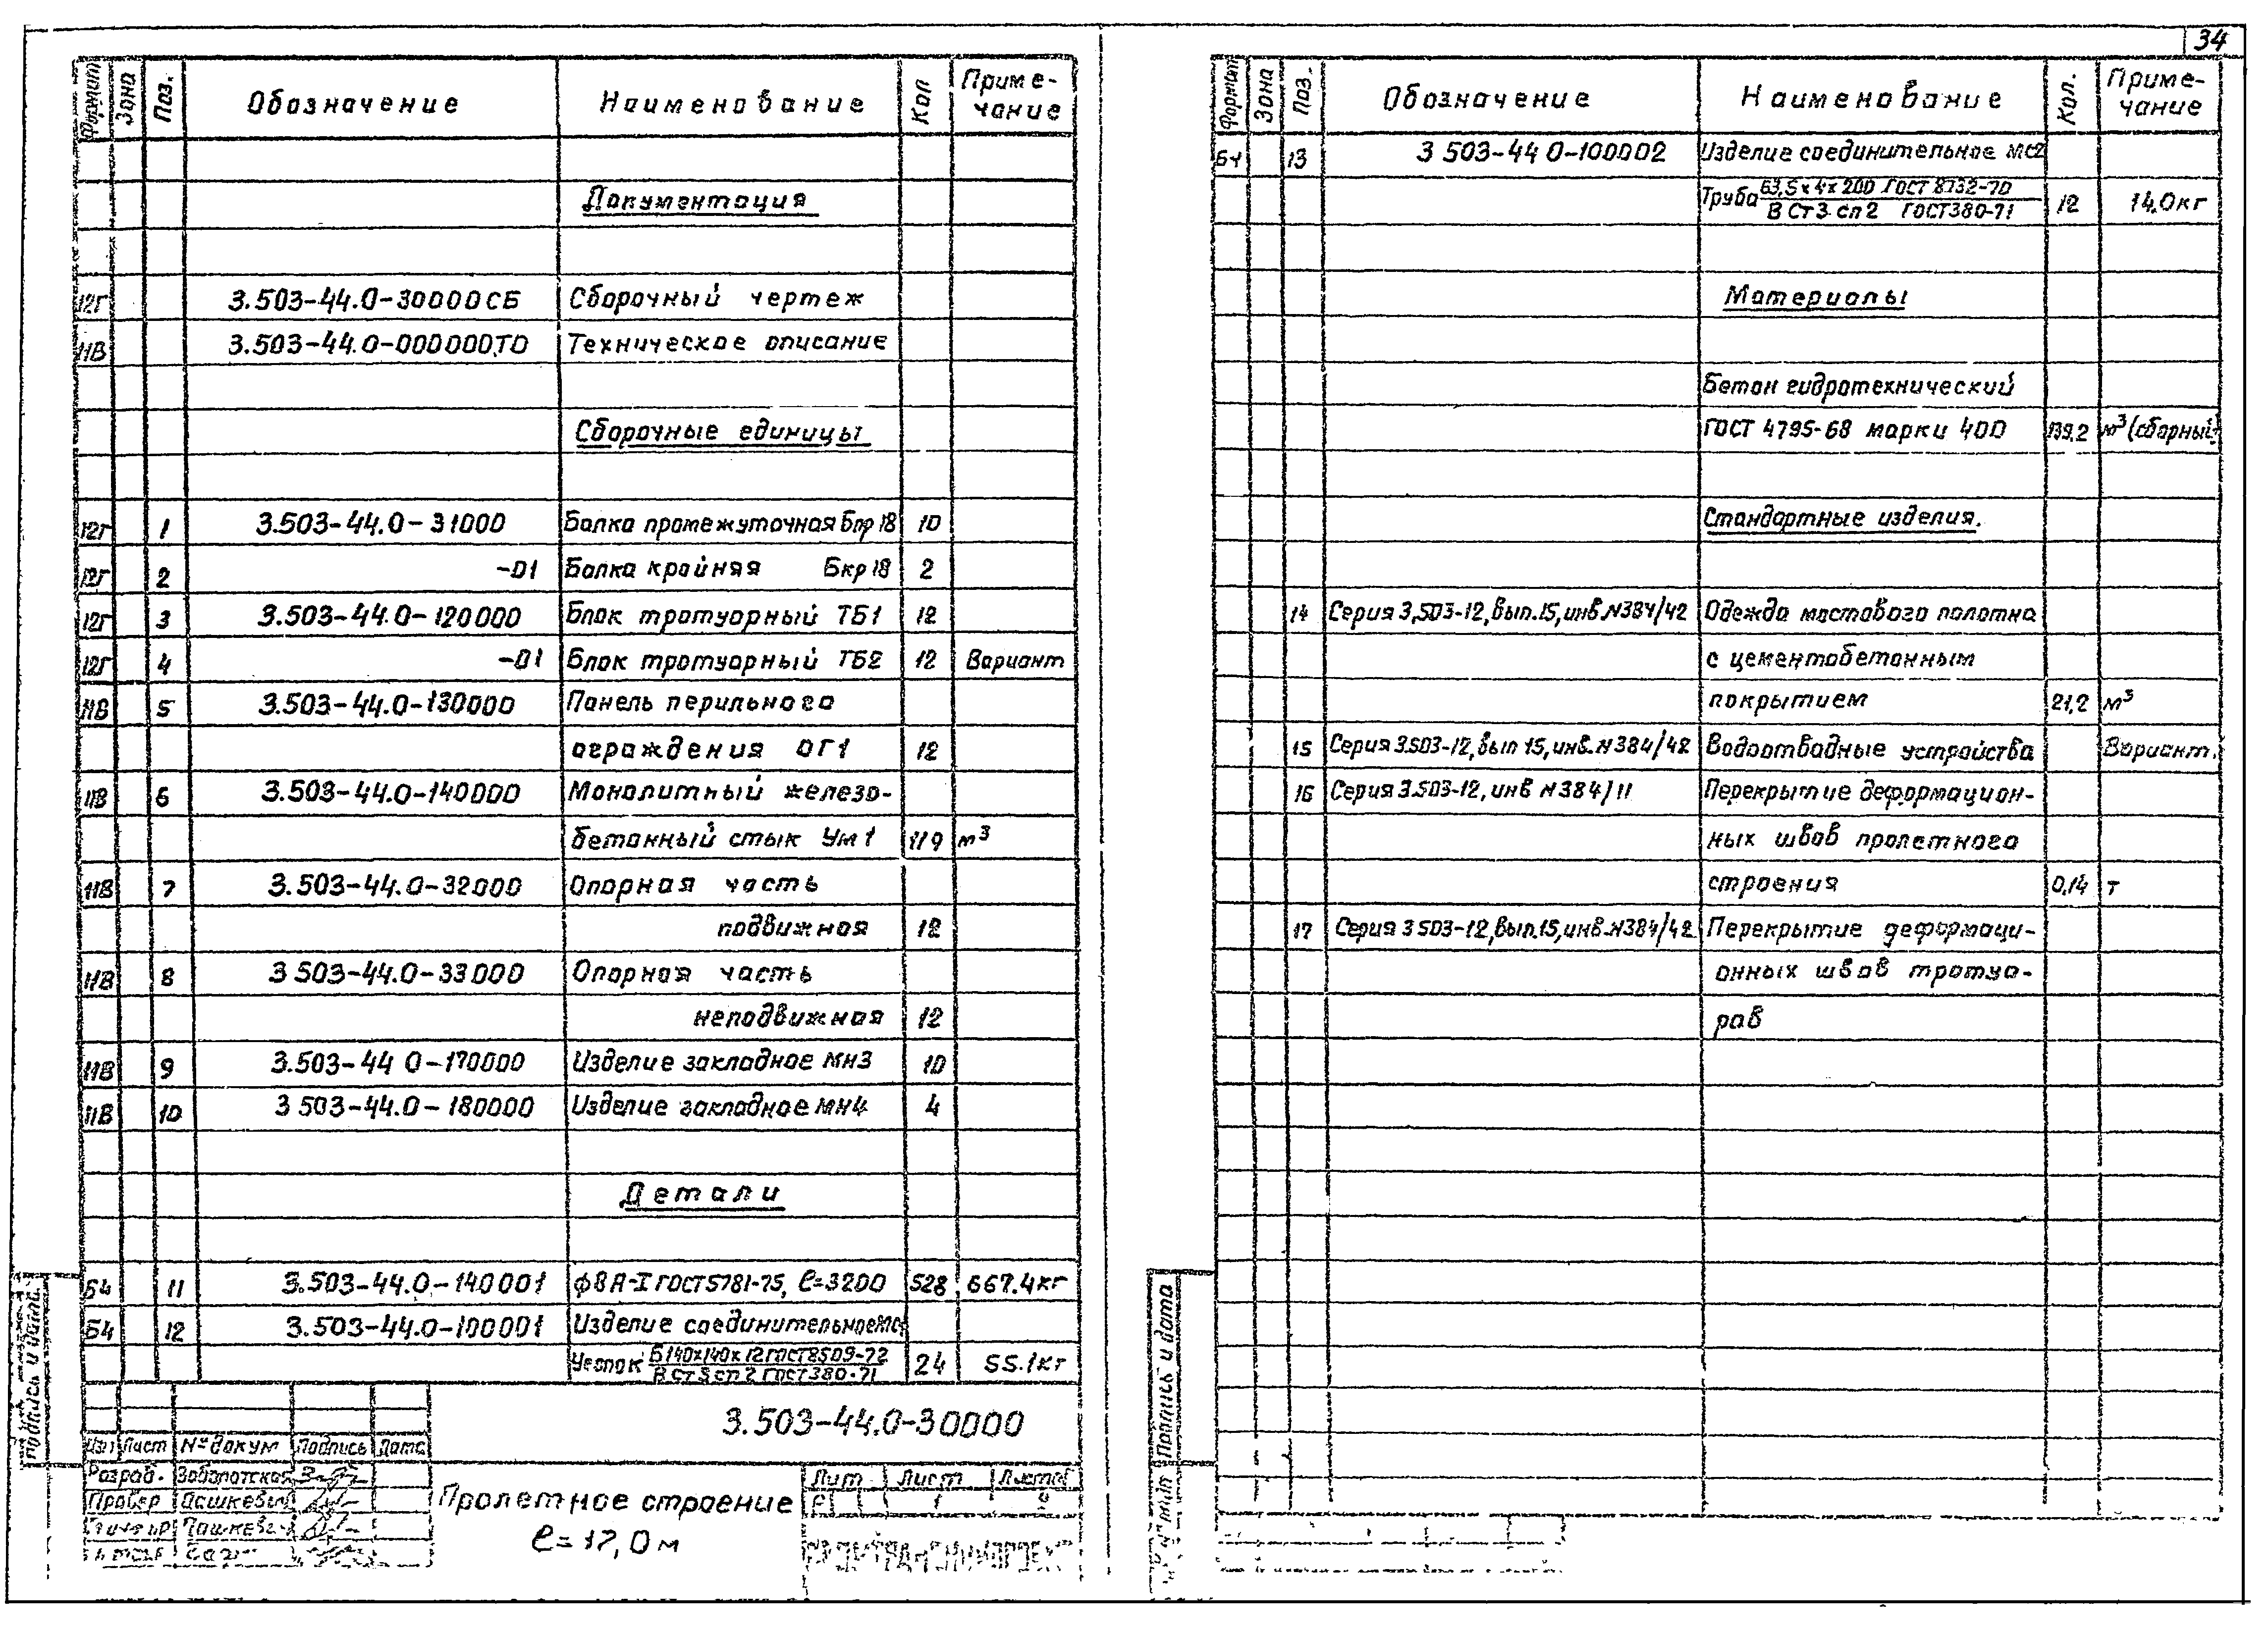 34
Формат Зона Поз. Обозначение Наименование Кол Приме-
чание
Документация
12Г 3.503-44.0-30000СБ Сборочный чертеж
11В 3.503-44.0-000000ТО Техническое описание
Сборочные единицы
12Г 1 3.503-44.0-31000 Балка промежуточная Бпр 18 10
12Г 2 -01 Балка крайняя Бкр 18 2
12Г 3 3.503-44.0-120000 Блок тротуарный ТБ1 12
12Г 4 -01 Блок тротуарный ТБ2 12 Вариант
11В 5 3.503-44.0-130000 Панель перильного
ограждения ОГ1 12
11В 6 3.503-44.0-140000 Монолитный железо-
бетонный стык Ум1 11,9 м³
11В 7 3.503-44.0-32000 Опорная часть
подвижная 12
11В 8 3 503-44.0-33000 Опорная часть
неподвижная 12
11В 9 3.503-44 0-170000 Изделие закладное МН3 10
11В 10 3 503-44.0-180000 Изделие закладное МН4 4
Детали
Б4 11 3.503-44.0-140001 ф8А-I ГОСТ5781-75, ℓ=3200 528 667.4кг
Б4 12 3.503-44.0-100001 Изделие соединительное
Уголок Б140х140х12 ГОСТ8509-72
В Ст3 сп 2 ГОСТ380-71 24 55.1кг
3.503-44.0-30000
Изм Лист № докум Подпись Дата
Разраб. Заболотская
Провер Пашкевич
Пашкевич
Пролетное строение
ℓ=17,0м
Лит Лист Листов
Р 1
Подпись и дата
Формат Зона Поз. Обозначение Наименование Кол. Приме-
чание
Б4 13 3 503-44 0-100002 Изделие соединительное МС2
Труба 63,5х4х200 ГОСТ 8732-70
В Ст3 сп2 ГОСТ380-71 12 14.0кг
Материалы
Бетон гидротехнический
ГОСТ 4795-68 марки 400 139,2 м³(сборный)
Стандартные изделия.
14 Серия 3.503-12, вып.15, инв.N384/42 Одежда мостового полотна
с цементобетонным
покрытием 21,2 м³
15 Серия 3.503-12, вып 15, инв.N384/42 Водоотводные устройства Вариант.
16 Серия 3.503-12, инв N384/11 Перекрытие деформацион-
ных швов пролетного
строения 0,14 т
17 Серия 3 503-12, вып.15, инв.N384/42 Перекрытие деформаци-
онных швов тротуа-
ров
Подпись и дата